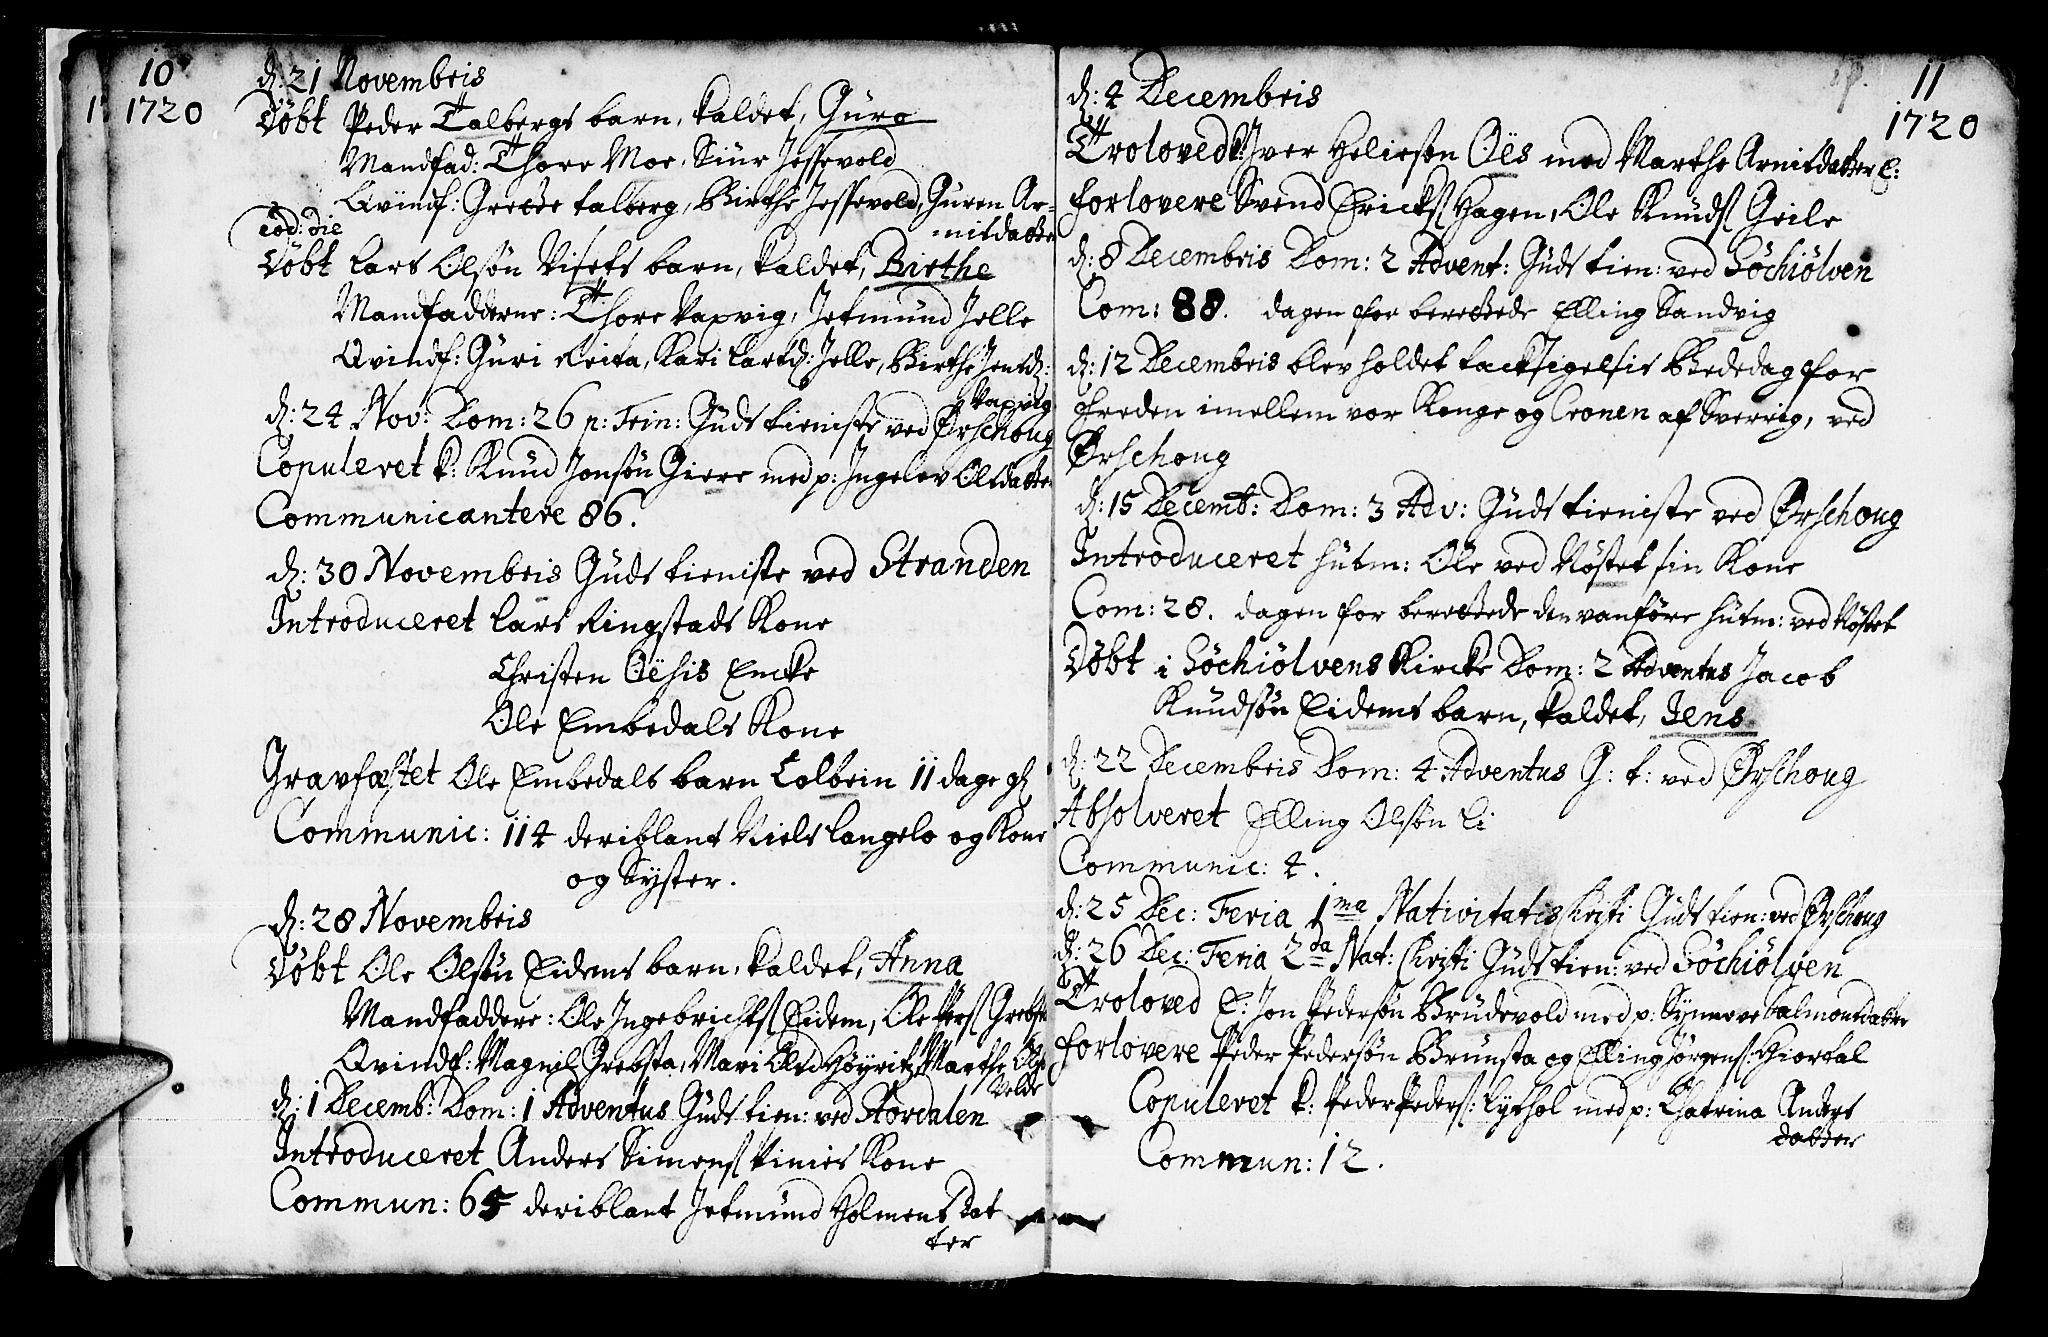 10
1720
d: 21 Novembris
Döbt Peder Talbergs barn, kaldet, Guro
Mandfad: Thore Moe, Siur Jessevold
Qvindf: Grethe talberg, Birthe Jessevold, Guren Ar=
nitsdatter
eod: die
Döbt Lars Olsön Visets barn, kaldet, Birthe
Mandfadderne: Thore Vaxvig, Jetmund Jelle
Qvindf: Guri Reita, Kari Larsd: Jelle, Birthe Jensd:
Vaxvig
d: 24 Nov: Dom: 26 p: Trin: Guds tieniste ved Ørschoug
Copuleret k: Knud Jonsön Giere med p: Ingelev Olsdatter
Communicantere 86.
d: 30 Novembris Guds tieniste ved Stranden
Introduceret Lars Ringstads Kone
Christen Oëhis Encke
Ole Embedals Kone
Gravfæstet Ole Embedals barn Colbein 11 dage gl
Communic: 114 deriblant Niels Langelo og Kone
og Syster.
d: 28 Novembris
Döbt Ole Olsön Eidems barn, kaldet, Anna
Mandfaddere: Ole Ingebrichts Eidem, Ole Pers Grebsta
Qvindf: Magnil Grebsta, Mari Olsd Høyvits, Marthe Ols
Velde
d: 1 Decemb: Dom: 1 Adventus Guds tien: ved Stordalen
Introduceret Anders Simens Vinies Kone
Commun: 65 deriblant Jetmund Holmens Dat
ter
11
1720
d: 4 Decembris
Troloved k: Iver Heliesön Oës med Marthe Arnitsdatter E:
forlovere Svend Ericks Hagen, Ole Knuds Geile
d: 8 Decembris Dom: 2 Advent: Guds tien: ved Söchiölven
Com: 88. dagen for berettede Elling Sandvig
d: 12 Decembris blev holdet tacksigelsis Bededag for
freden imellem vor Konge og Cronen af Sverrig, ved
Ørschoug
d: 15 Decemb: Dom: 3 Adv: Guds tieniste ved Ørschoug
Introduceret husm: Ole ved Nöstet sin Kone
Com: 28. dagen for berettede den vanföre husm: ved Nöstet
Döbt i Söchiölvens Kircke Dom: 2 Adventus Jacob
Knudsön Eidems barn, kaldet, Jens
d: 22 Decembris Dom: 4 Adventus G: t: ved Ørschoug
Absolveret Elling Olsön Li
Communic: 4.
d: 25 Dec: Feria 1ma Nativitatis Christi Guds tien: ved Ørschoug
d: 26 Dec: Feria 2da Nat: Christi Guds tien: ved Söchiölven
Troloved E: Jon Pedersön Brudevold med p: Synneve Salmonsdatter
forlovere Peder Pedersön Brunsta og Elling Jörgens: Giortal
Copuleret k: Peder Peders: Lythol med p: Chatrina Anders
datter
Commun: 12.